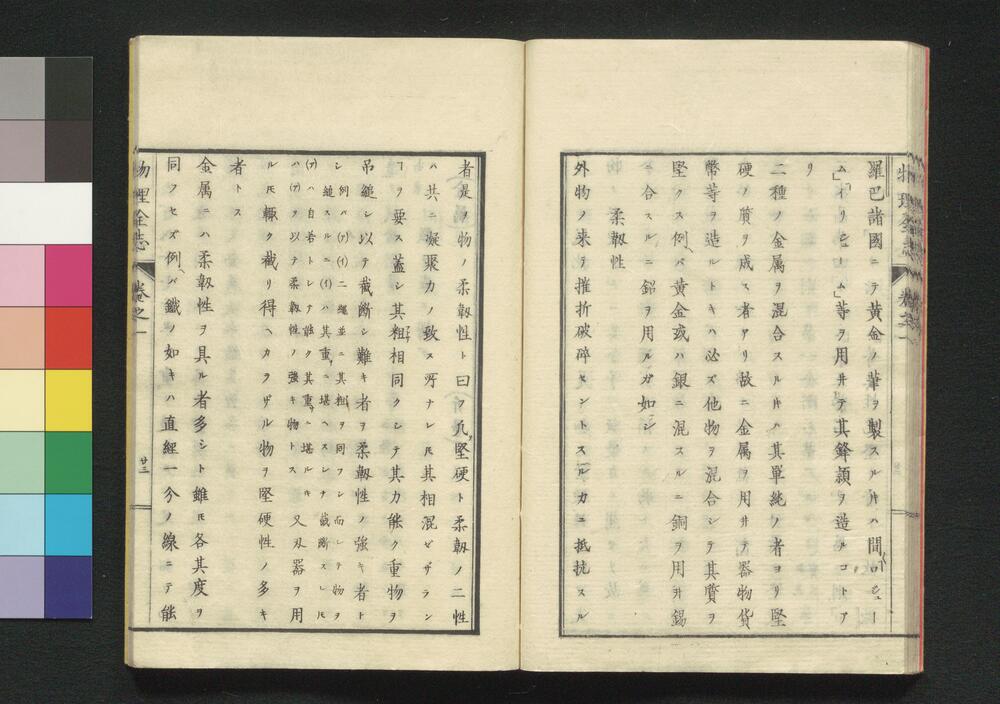 羅巴諸國ニテ黄金ノ華ヲ製スルㇳキハ間「ロジュー
ム」「イリヒーユム」等ヲ用井テ其鋒頴ヲ造ルコトア
リ
二種ノ金属ヲ混合スルㇳキハ其單純ノ者ヨリ堅
硬ノ質ヲ成ス者アリ故ニ金属ヲ用井テ器物貨
幣等ヲ造ルトキハ必ズ他物ヲ混合シテ其質ヲ
堅クス例ヘバ黄金或ハ銀ニ混スルニ銅ヲ用井錫
ニ合スルニ鉛ヲ用ルガ如シ
柔靱性
外物ノ来テ摧折破碎セントスルカニ抵抗スル
物理全志 巻之一
者是ヲ物ノ柔靱性ト曰フ凡ソ堅硬ト柔靱ノ二性
ハ共ニ凝聚力ノ致ス所ナレㇳモ其相混ゼザラン
ヿヲ要ス蓋シ其粗相同クシテ其力能ク重物ヲ
吊縋シ以テ截斷シ難キ者ヲ柔靱性ノ強キ者ト
シ例バ(ア)(イ)二縄並ニ其粗ヲ同フシ而シテ物ヲ
縋スルニ(イ)ハ其重ニ堪ヘスシテ截斷スレㇳモ
(ア)ハ自若トシテ能ク其重ニ堪ルキ
ハ(ア)ヲ以テ柔靱性ノ強キ物トス又刃器ヲ用
ルㇳモ輙ク截リ得ヘカラザル物ヲ堅硬性ノ多キ
者トス
金属ニハ柔靱性ヲ具ル者多シト雖ㇳモ各其度ヲ
同フセズ例ヘバ鐵ノ如キハ直經一分ノ線ニテ能
物理全志 巻之一 廿三